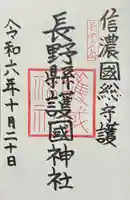 信濃國総守護
長野縣護國神社
令和六年十月二十日